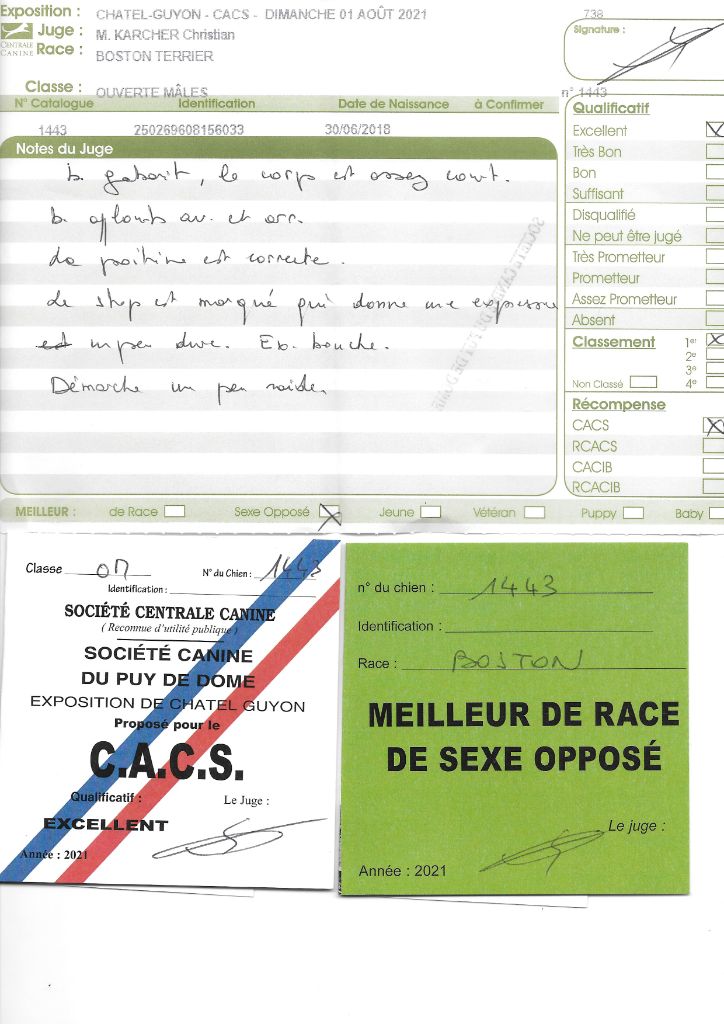 Exposition : CHATEL-GUYON - CACS - DIMANCHE 01 AOÛT 2021
738
Juge : M. KARCHER Christian
CENTRALE CANINE
Race : BOSTON TERRIER
Signature :
Classe : OUVERTE MÂLES
n° 1443
N° Catalogue Identification Date de Naissance à Confirmer
1443 250269608156033 30/06/2018
Notes du Juge
b. gabarit, le corps est assez court.
b. aplombs av. et arr.
La poitrine est correcte.
Le stop est marqué qui donne une expression
un peu dure. Ex. bouche.
Démarche un peu raide.
Qualificatif
Excellent
Très Bon
Bon
Suffisant
Disqualifié
Ne peut être jugé
Très Prometteur
Prometteur
Assez Prometteur
Absent
Classement 1er
2e
3e
Non Classé 4e
Récompense
CACS
RCACS
CACIB
RCACIB
MEILLEUR : de Race Sexe Opposé Jeune Vétéran Puppy Baby
Classe OM N° du Chien : 1443
Identification :
SOCIÉTÉ CENTRALE CANINE
( Reconnue d'utilité publique )
SOCIÉTÉ CANINE
DU PUY DE DOME
EXPOSITION DE CHATEL GUYON
Proposé pour le
C.A.C.S.
Qualificatif : Le Juge :
EXCELLENT
Année : 2021
n° du chien : 1443
Identification :
Race : BOSTON
MEILLEUR DE RACE
DE SEXE OPPOSÉ
Le juge :
Année : 2021